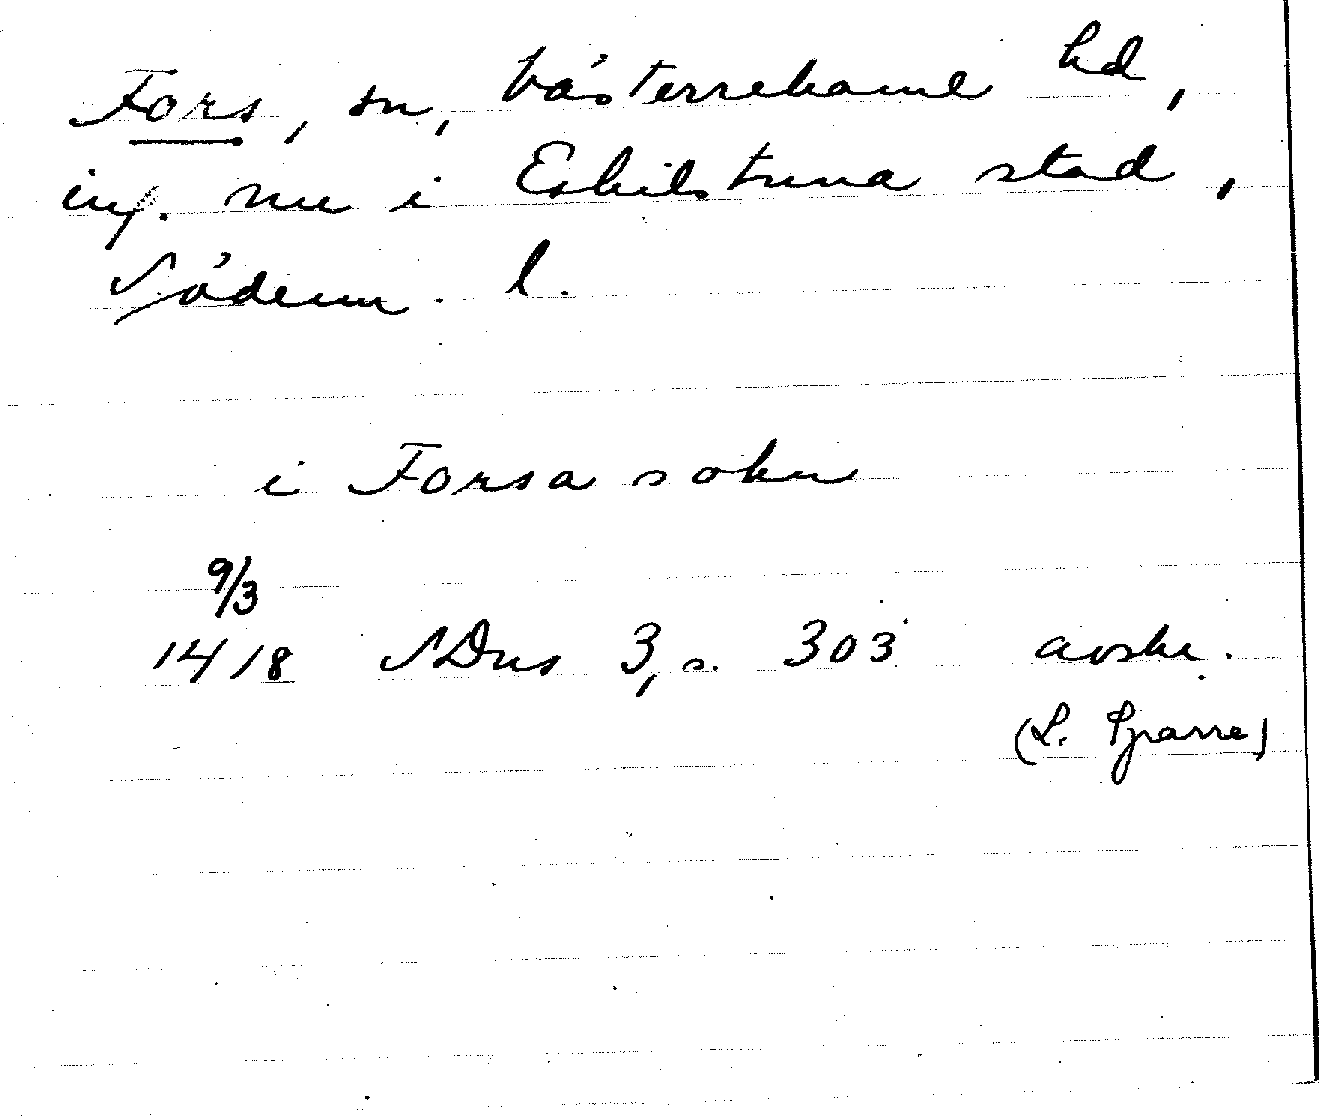 Fors, sn, Västerrekarne hd,
ing. nu i Eskilstuna stad,
Söderm. l.
i Forsa sokn
9/3
1418 SDns 3, s. 303 avskr.
(L. Sparre)